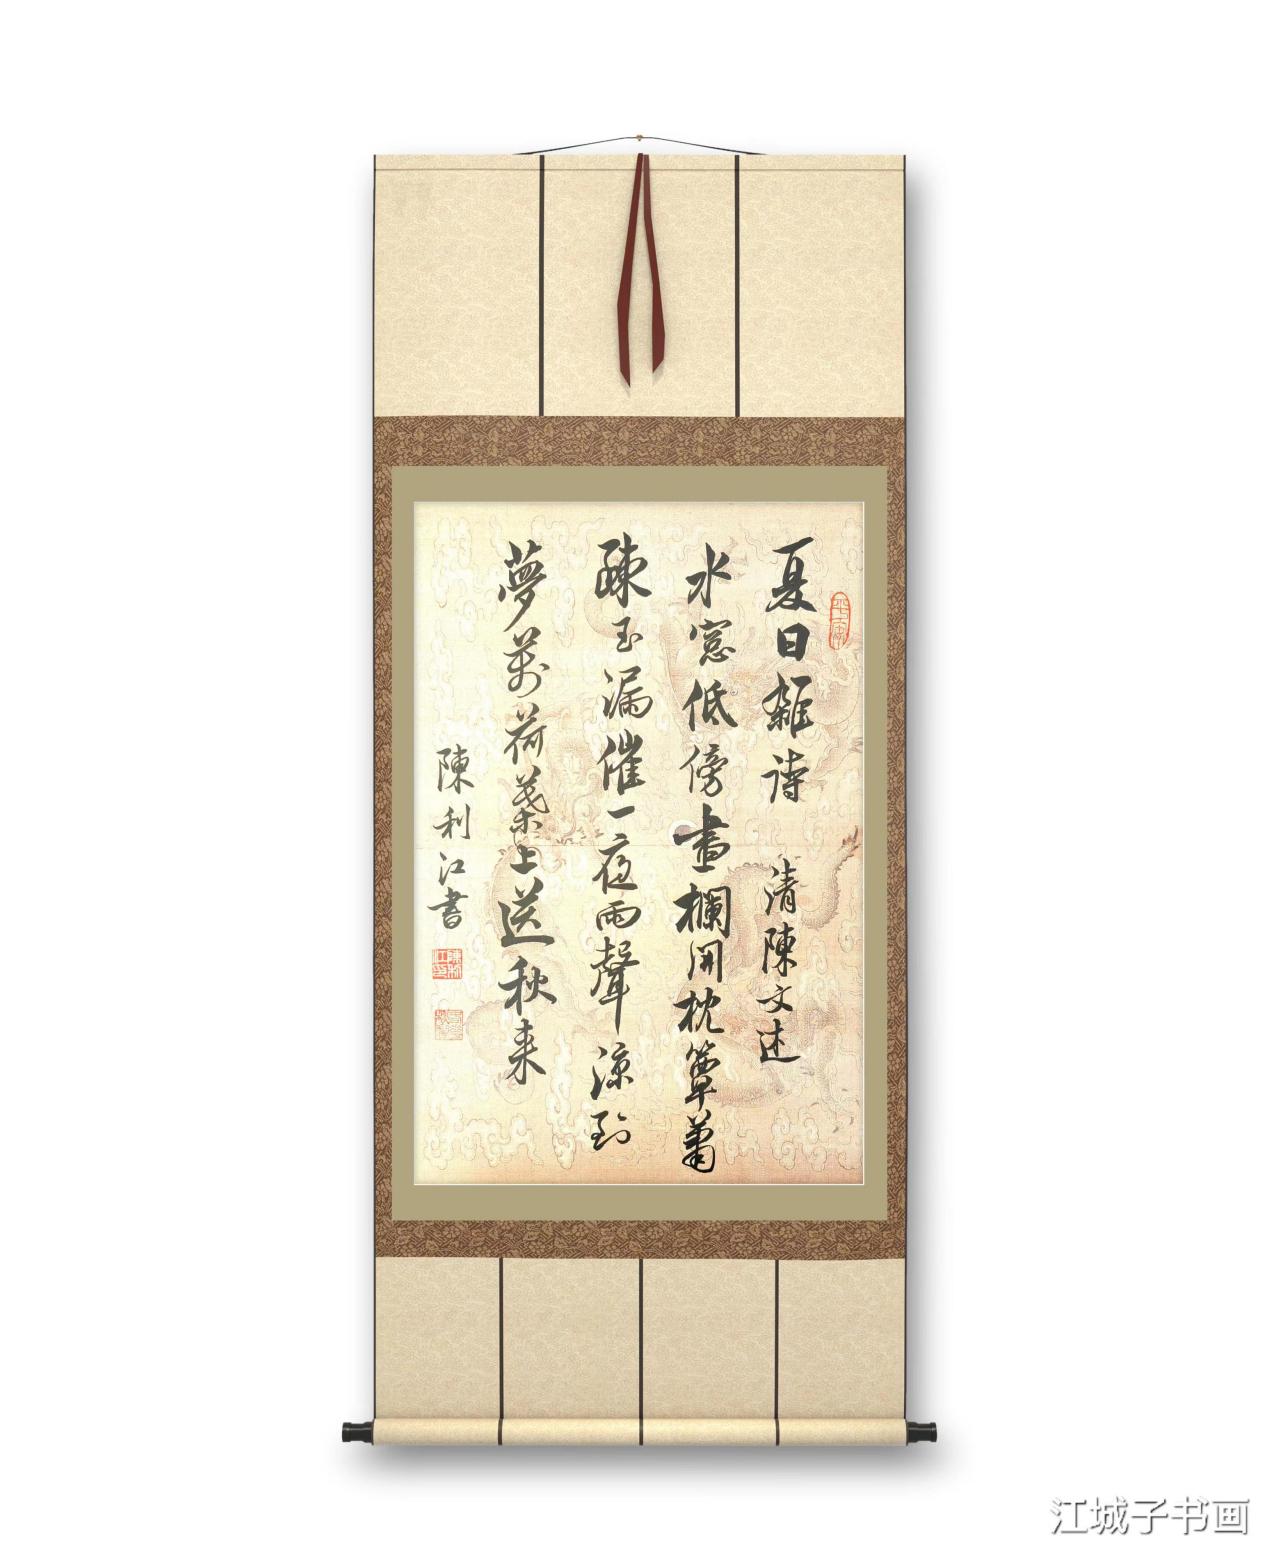 夏日雜詩 清陳文述
水窓低傍畫欄開枕簟蕭
疎玉漏催一夜雨聲涼到
夢萬荷葉上送秋来
陳利江書
江城子书画